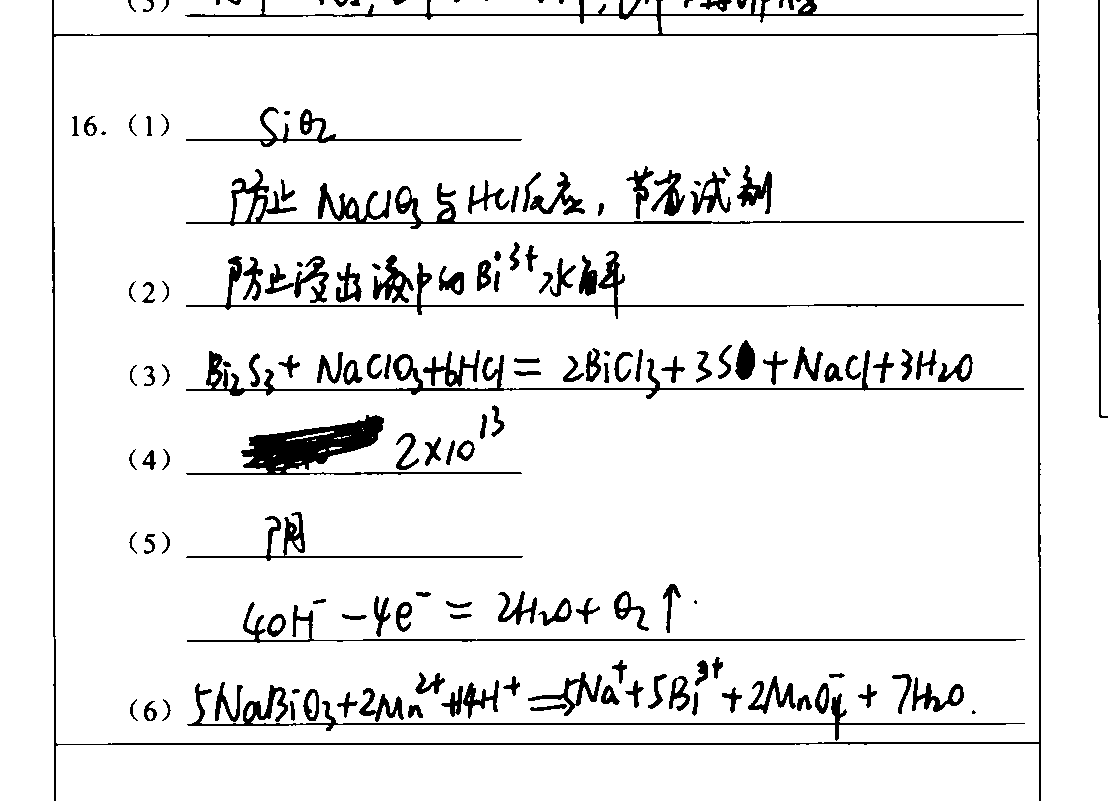 (3)
16. (1) SiO2
防止 NaClO3 与 HCl反应，节省试剂
(2) 防止浸出液中的 Bi³⁺水解
(3) Bi2S3+ NaClO3+6HCl = 2BiCl3+3S+NaCl+3H2O
(4) 2×10¹³
(5) 阴
4OH⁻ -4e⁻ = 2H2O+ O2↑
(6) 5NaBiO3+2Mn²⁺+14H⁺ =5Na⁺+5Bi³⁺+2MnO4⁻ + 7H2O.